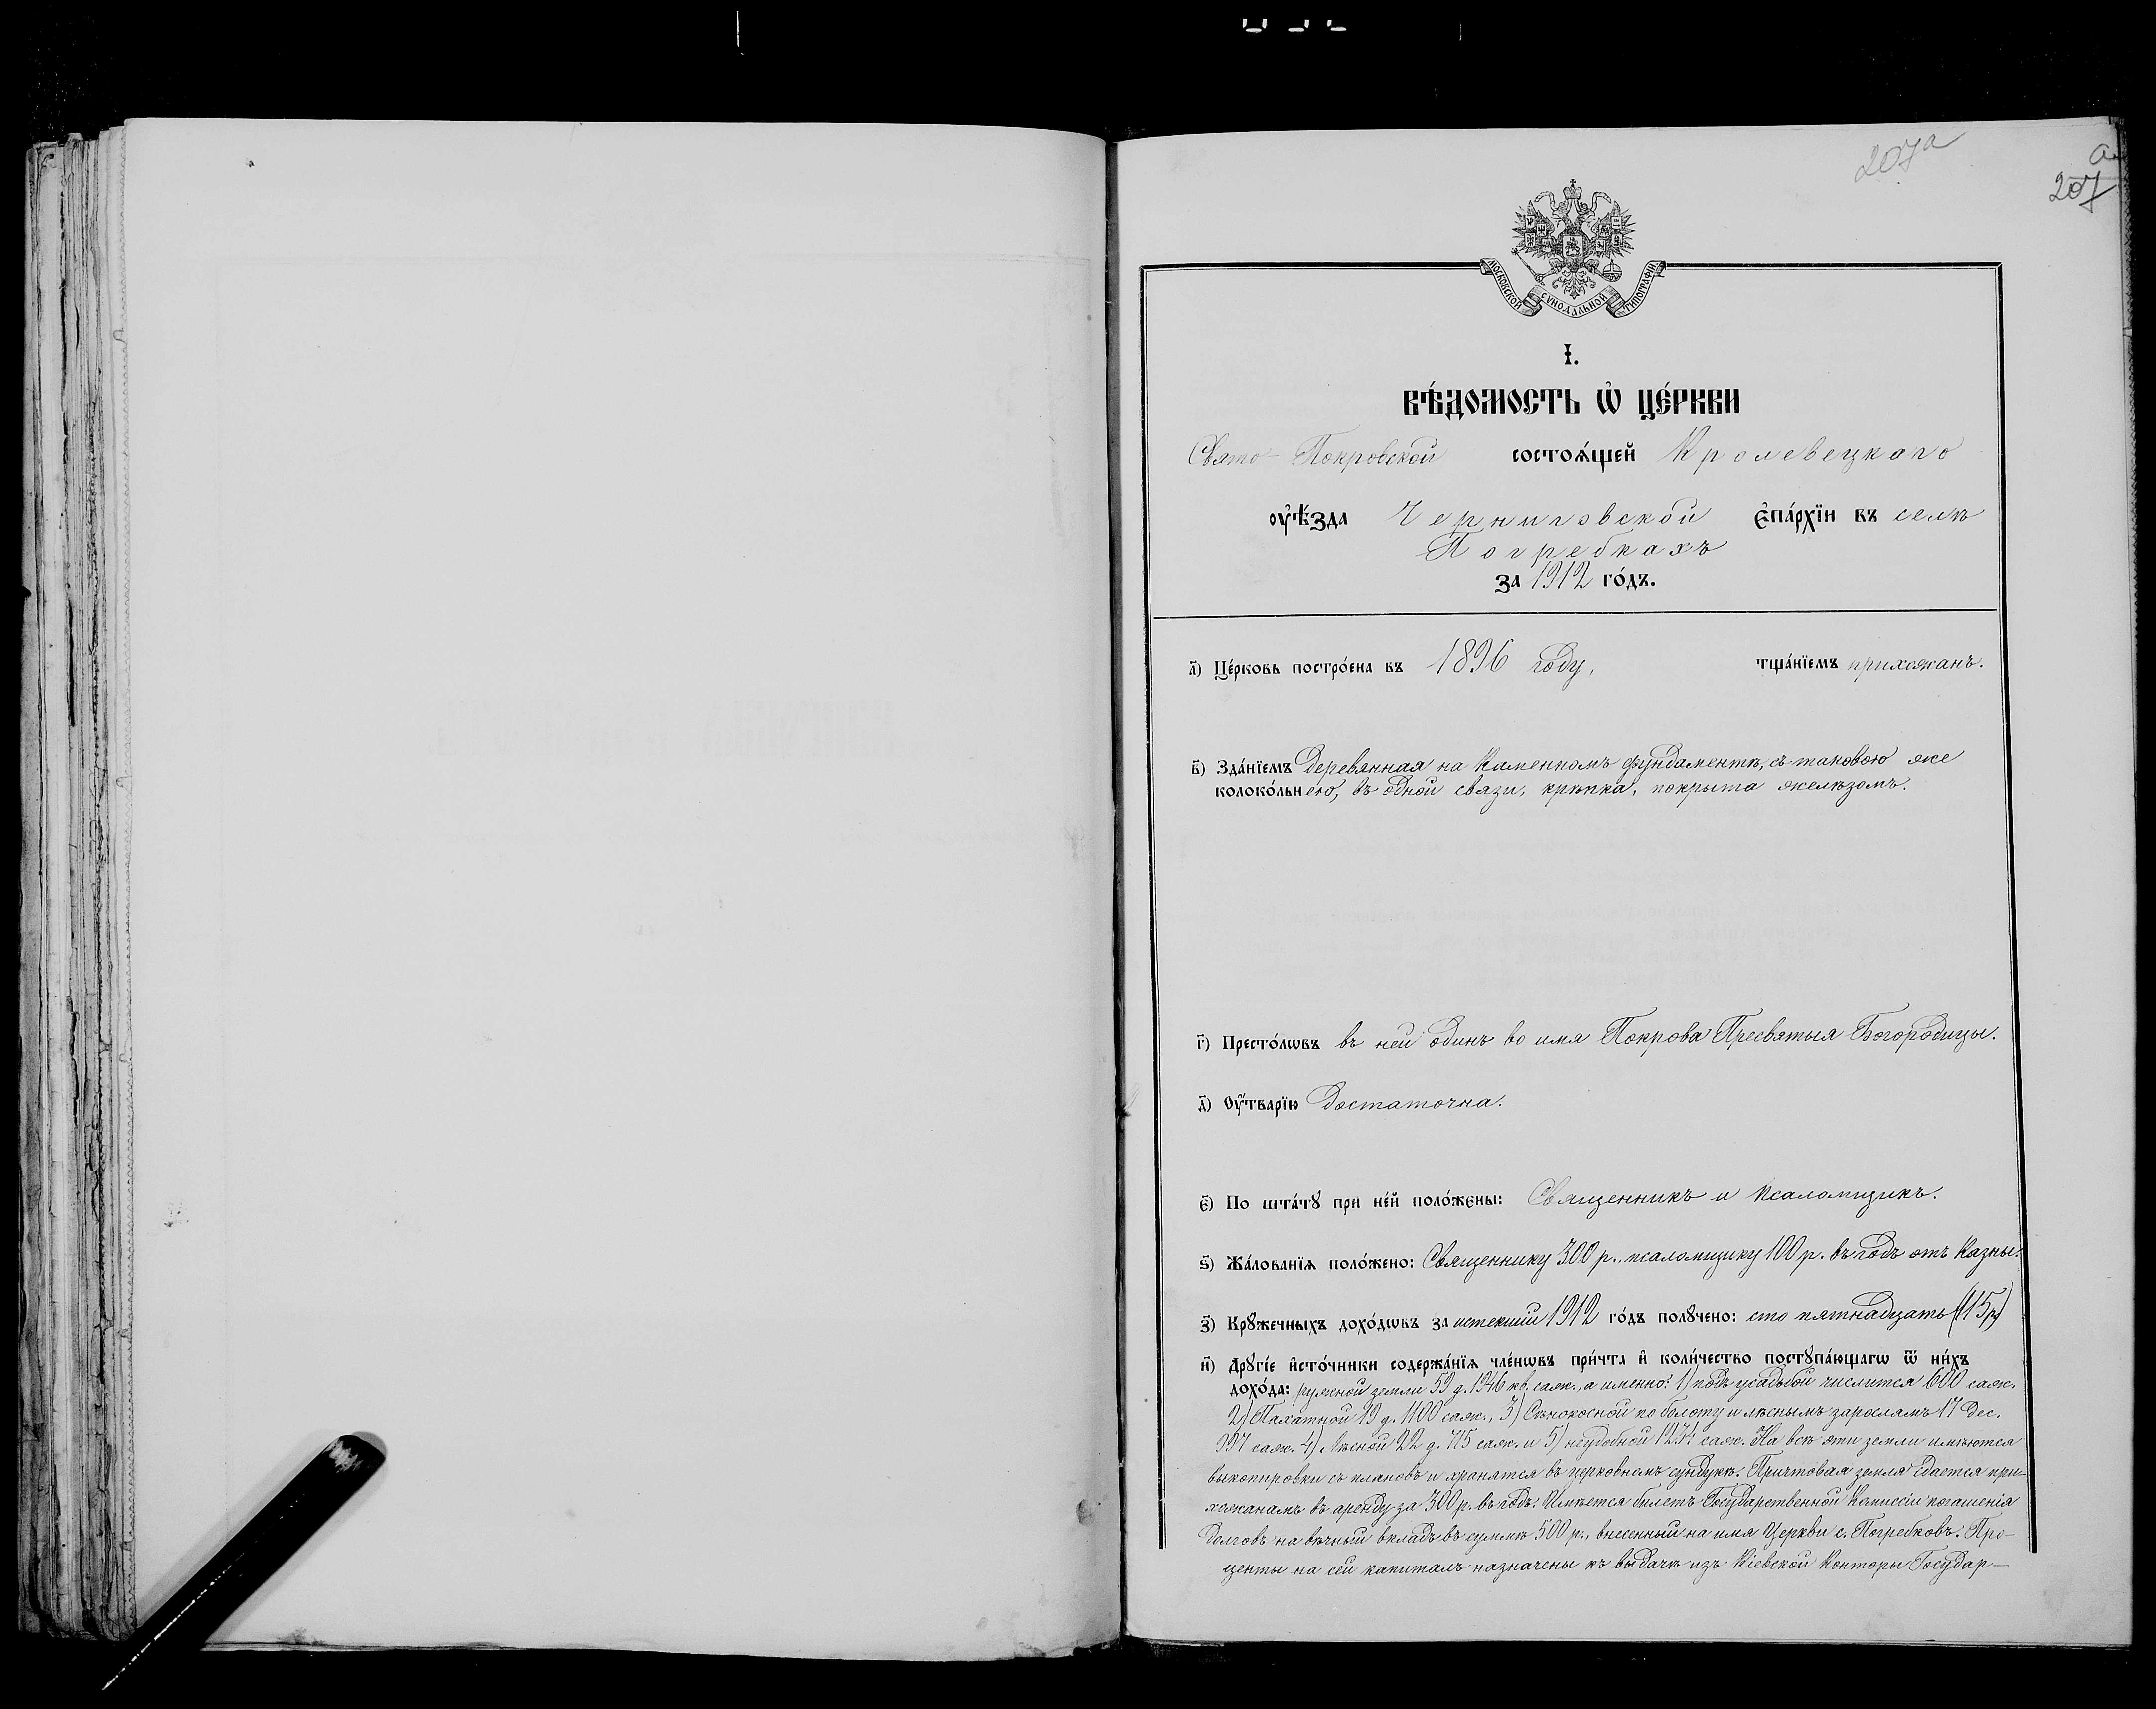 207а
а
207
МОСКОВСКОЙ СУНОДАЛЬНОЙ ТИПОГРАФІИ
І.
ВѢ́ДОМОСТЬ Ѡ҆ ЦЕ́РКВИ
Свято-Покровской состоѧ́щей Кролевецкаго
оу҆ѣ́зда Черниговской є҆па́рхїи въ селѣ
Погребкахъ
за 1912 го́дъ.
а҃) Це́рковь постро́ена въ 1896 году, тща́нїемъ прихожанъ.
в҃) Зда́нїемъ деревянная на каменномъ фундаментѣ, съ таковою же
колоко́льнею, въ одной связи, крѣпка, покрыта желѣзомъ.
г҃) Престо́лѡвъ въ ней одинъ во имя Покрова Пресвятыя Богородицы.
д҃) Оу҆́тварїю достаточна.
є҃) По шта́тꙋ при не́й поло́жены: Священникъ и псаломщикъ.
ѕ҃) Жа́лованїѧ поло́жено: Священнику 300 р., псаломщику 100 р. въ годъ отъ казны.
з҃) Крꙋ́жечныхъ дохо́дѡвъ за истекшій 1912 го́дъ полꙋ́чено: сто пятнадцать (115 р)
и҃) Дрꙋгі́е и҆сто́чники содержа́нїѧ чле́нѡвъ при́чта и҆ коли́чество постꙋпа́ющагѡ ѿ ни́хъ
дохо́да: ружной земли 59 д. 1946 кв. саж., а именно: 1) подъ усадьбой числится 600 саж.
2) Пахатной 19 д. 1100 саж., 3) Сѣнокосной по болоту и лѣснымъ зарослямъ 17 дес.
997 саж. 4) Лѣсной 22 д. 715 саж. и 5) неудобной 1234 саж. На всѣ эти земли имѣются
выкопировки съ плановъ и хранятся въ церковномъ сундукѣ. Причтовая земля сдается при-
хожанамъ въ аренду за 300 р. въ годъ. Имѣется билетъ Государственной Комиссіи погашенія
долговъ на вѣчный вкладъ въ суммѣ 500 р., внесенный на имя Церкви с. Погребковъ. Про-
центы на сей капиталъ назначены къ выдачѣ изъ Кіевской Конторы Государ-